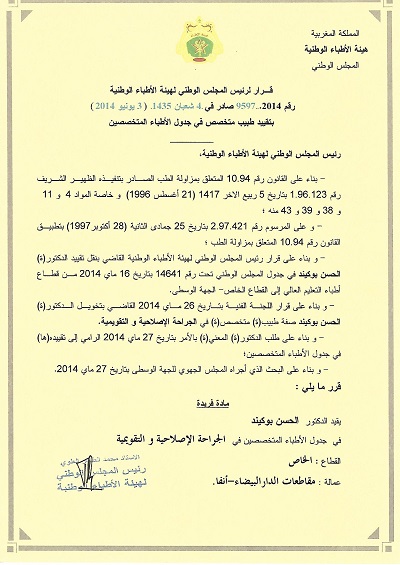 المملكة المغربية
هيئة الأطباء الوطنية
المجلس الوطني
قـرار لرئيس المجلس الوطني لهيئة الأطباء الوطنية
رقم 2014،..9597 صادر في.4 شعبان 1435. ( 3 يونيو 2014 )
بتقييد طبيب متخصص في جدول الأطباء المتخصصين
رئيس المجلس الوطني لهيئة الأطباء الوطنية،
– بناء على القانون رقم 10.94 المتعلق بمزاولة الطب الصادر بتنفيذه الظهير الشريف
رقم 1.96.123 بتاريخ 5 ربيع الاخر 1417 (21 أغسطس 1996) و خاصة المواد 4 و 11
و 38 و 39 و 43 منه ؛
– و على المرسوم رقم 2.97.421 بتاريخ 25 جمادى الثانية (28 أكتوبر1997) بتطبيق
القانون رقم 10.94 المتعلق بمزاولة الطب ؛
– و بناء على قرار رئيس المجلس الوطني لهيئة الأطباء الوطنية القاضي بنقل تقييد الدكتور(ة)
الحسن بوكيند في جدول المجلس الوطني تحت رقم 14641 بتاريخ 16 ماي 2014 من قطاع
أطباء التعليم العالي إلى القطاع الخاص- الجهة الوسطى.
– و بناء على قرار اللجنة الفنية بتاريخ 26 ماي 2014 القاضي بتخويل الدكتور(ة)
الحسن بوكيند صفة طبيب(ة) متخصص(ة) في الجراحة الإصلاحية و التقويمية.
– و بناء على طلب الدكتور(ة) المعني(ة) بالأمر بتاريخ 27 ماي 2014 الرامي إلى تقييده(ها)
في جدول الأطباء المتخصصين؛
– و بناء على البحث الذي أجراه المجلس الجهوي للجهة الوسطى بتاريخ 27 ماي 2014.
قرر ما يلي :
مادة فريدة
يقيد الدكتور الحسن بوكيند
في جدول الأطباء المتخصصين في الجراحة الإصلاحية و التقويمية
القطاع : الخاص
عمالة : مقاطعات الدارالبيضاء-أنفا.
الاستاذ محمد العلوي
رئيس المجلس الوطني
لهيئة الأطباء الوطنية